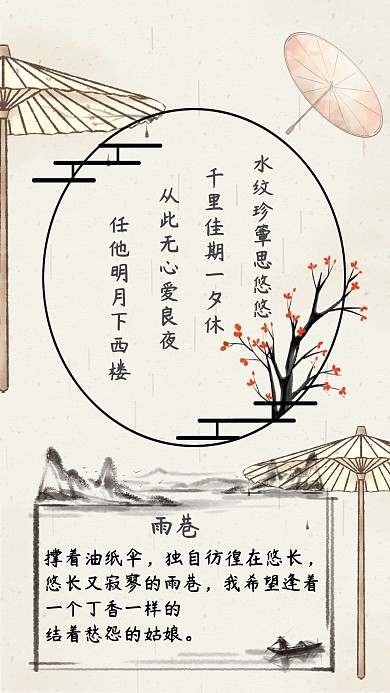 水纹珍簟思悠悠
千里佳期一夕休
从此无心爱良夜
任他明月下西楼
雨巷
撑着油纸伞，独自彷徨在悠长，
悠长又寂寥的雨巷，我希望逢着
一个丁香一样的
结着愁怨的姑娘。